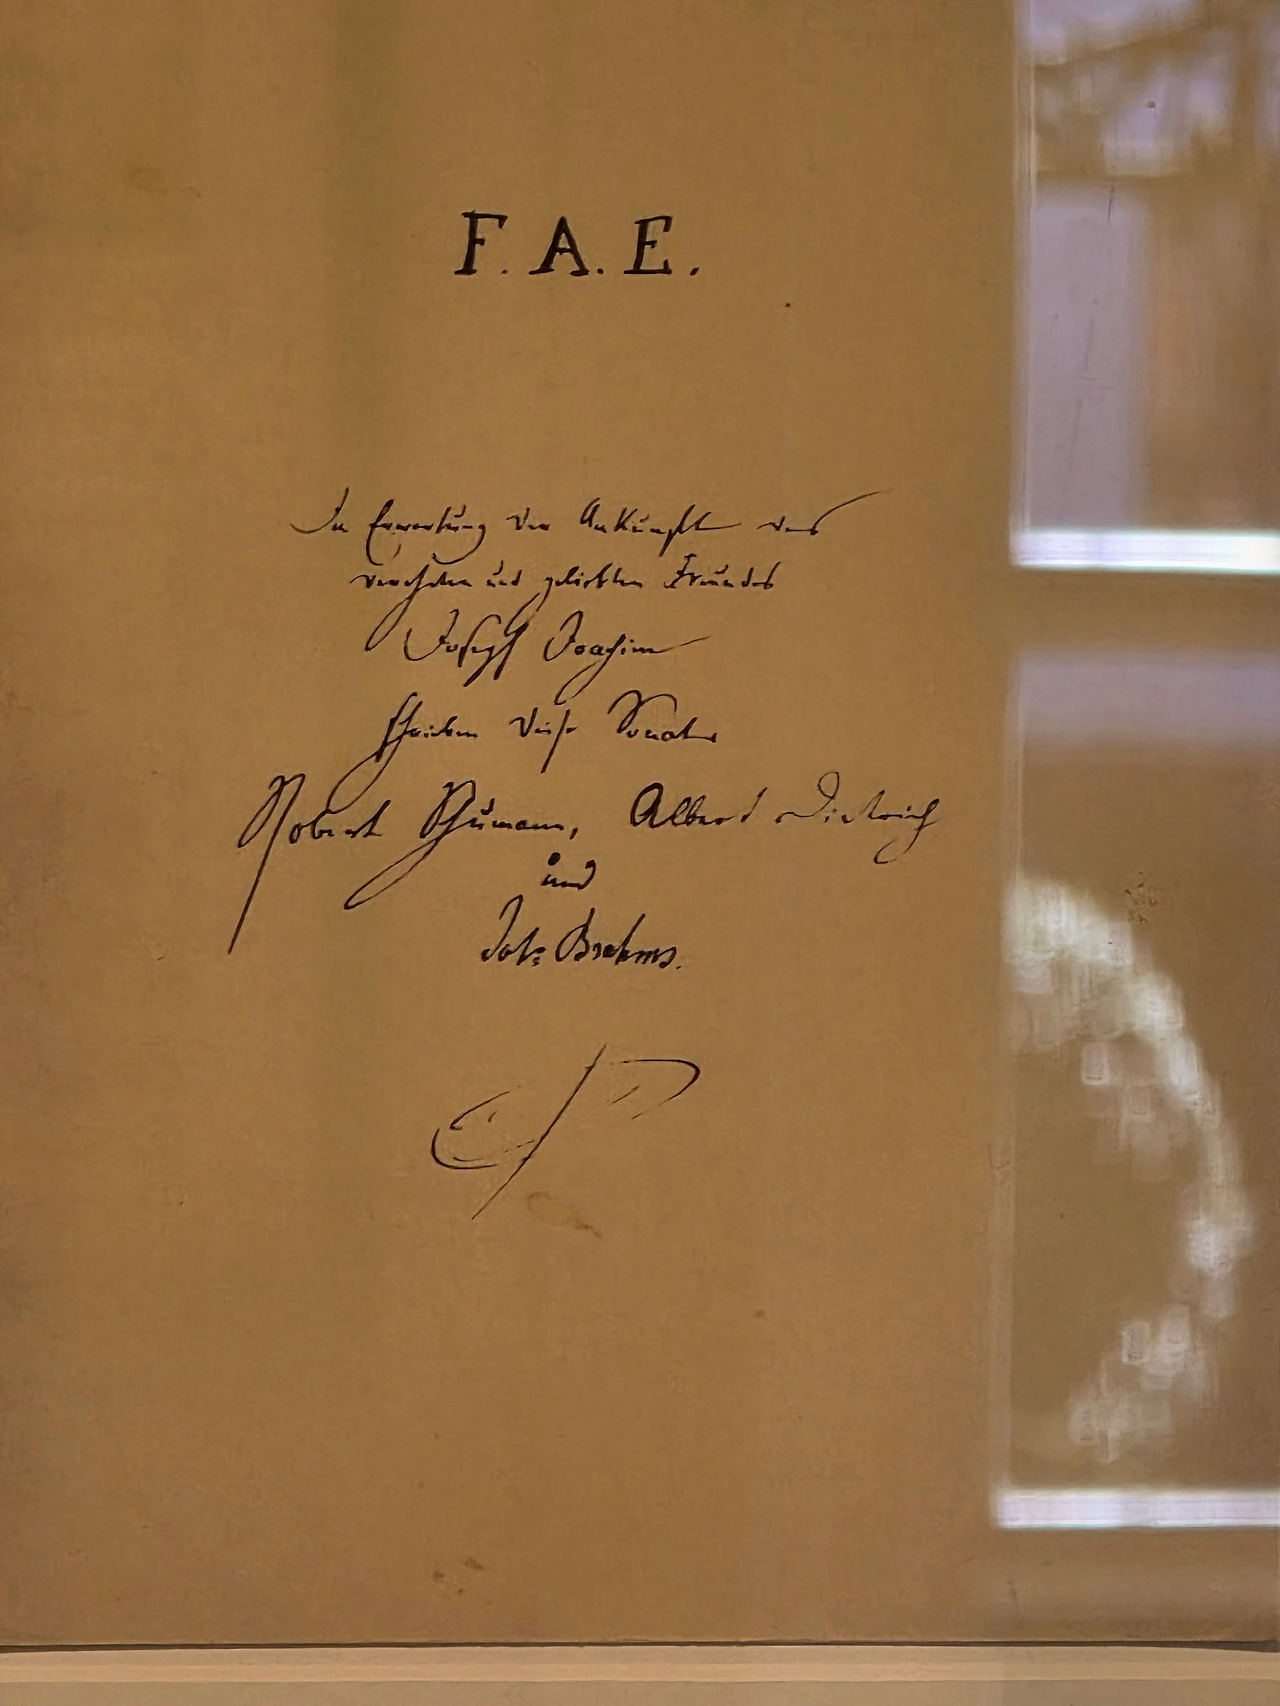 F. A. E.
In Erwartung der Ankunft des
verehrten und geliebten Freundes
Joseph Joachim
schrieben diese Sonate
Robert Schumann, Albert Dietrich
und
Joh: Brahms.